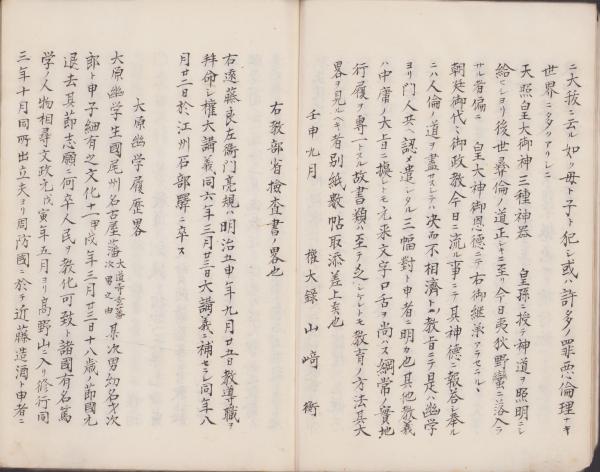 ニ大祓ニ云ル如ク母ト子ト犯シ或ハ許多ノ罪悪倫理ナキ
世界ニタリアリシニ
天照皇大御神三種神器 皇孫ニ授テ神道ヲ照明ニシ
給ヒシヨリ後世彛倫ノ道正シキニ至リ今日夷狄野蛮ニ陥入ラ
サル者偏ニ 皇大神御恩徳ニテ右御継業アラセラルヽ
朝廷御代々御政教今日ニ流ル事ニテ其神徳ニ報答シ奉ル
ニハ人倫ノ道ヲ盡サスシテハ決而不相濟トノ教旨ニテ是ハ幽学
ヨリ門人共ヘ認メ遣シタル三幅對ト申者ニ明カ也其他教義
ハ中庸ノ大旨ニ據レトモ元来文字口舌ヲ尚ハス綱常ノ實地
行履ヲ専一トスル故書類ハ至テ乏シケレトモ教育ノ方法其大
畧ヲ見ルヘキ者別紙数帖取添差上奉也
壬申九月 権大録 山﨑 衡
右教部省檢査書ノ畧也
右遠藤良左衛門亮規ハ明治五申年九月廿五日教導職ヲ
拜命シ權大講義同六年三月廿三日大講義ニ補セラレ同年八
月廿二日於江州石部驛ニ卒ス
大原幽学履歴畧
大原幽学生國尾州名古屋藩大道寺玄蕃次男之由某次男幼名才次
郎ト申子細有之文化十一甲戌年三月廿三日十八歳ノ節國元
退去其節志願ニ何卒人民ヲ教化可致ト諸國有名篤
学ノ人物相尋文政元戊寅年五月ヨリ高野山ニ入リ修行同
三年十月同所出立夫ヨリ周防國ニ於テ近藤造酒ト申者ニ